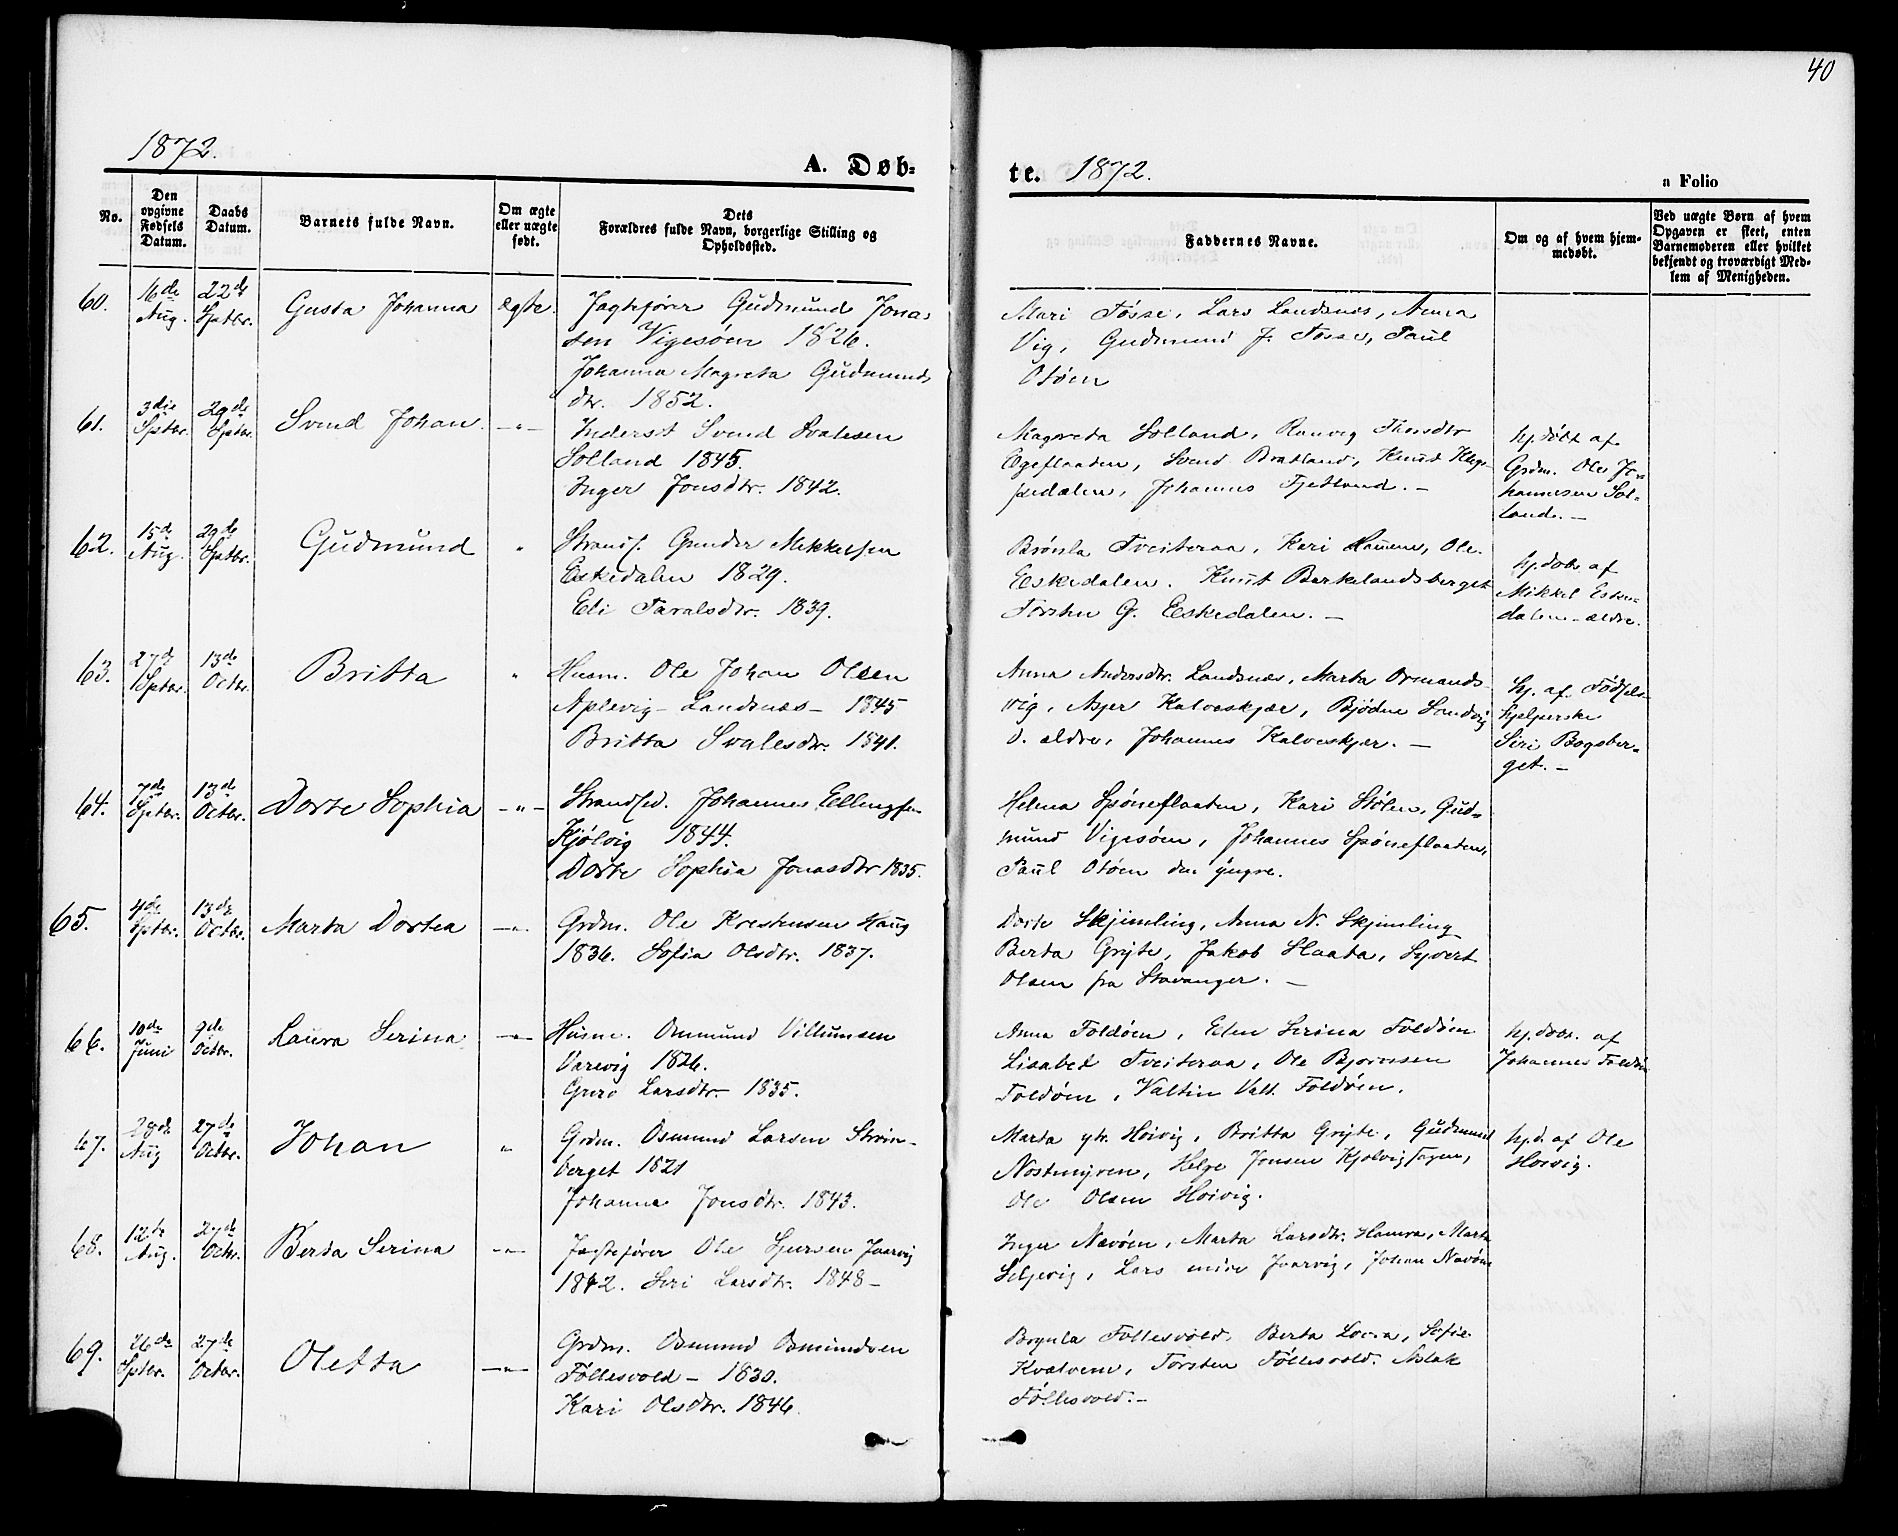 40
1872.
A. Døb=
te. 1872.
a Folio
No.
Den opgivne Fødsels Datum.
Daabs Datum.
Barnets fulde Navn.
Om ægte eller uægte født.
Dets Forældres fulde Navn, borgerlige Stilling og Opholdssted.
Faddernes Navne.
Om og af hvem hjem-medøbt.
Ved uægte Børn af hvem Opgaven er skeet, enten Barnemoderen eller hvilket bekjendt og troværdigt Med-lem af Menigheden.
60.
16de Aug.
22de Septbr.
Gusta Johanna
ægte.
Jagtefører Gudmund Jona-
sen Vigesøen 1826.
Johanna Magreta Gudmunds
dtr. 1852.
Mari Fosse, Lars Landsnes, Anna
Vig, Gudmund J. Fosse, Paul
Otøen
61.
3die Septbr.
29de Septbr.
Svend Johan.
-„-
Inderst Svend Svalesen
Solland 1845.
Inger Jonsdtr. 1842.
Magreta Solland, Ranvig Thordtr
Øgeflaaten, Svend Bratland, Knud
Johannes Fjetland. -
hj.døbt af
Grdm. Ole Jo-
hannesen Sol-
land. -
62.
15de Aug.
29de Septbr.
Gudmund
„
Strands. Gunder Mikkelsen
Eskedalen 1829.
Eli Taralsdtr. 1839.
Tveiteraa, Kari Hauene, Ole
Eeskedalen. Knut Berkelandsberget
Torsten G. Eeskedalen. -
hj.dob. af
Mikkel Eske-
dalen - ældre.
63.
27de Septbr.
13de Octbr.
Britta
„
Husm. Ole Johan Olsen
Aplevig - Landsnæs - 1845
Britta Svalesdtr. 1841.
Anna Andersdtr. Landsnæs, Marta Ormands-
vig, Asjer Kalveskjær, Bjødne Sandvig
d. ældre, Johannes Kalveskjær. -
Hj. af Fødsels-
hjelperske
Siri Bogsber-
get. -
64.
7de Septbr.
13de Octbr.
Dorte Sophia
-„-
Strandsid. Johannes Ellingsen
Kjølvig 1844.
Dorte Sophia Jonasdtr 1835.
Helena Spøneflaaten, Kari Stølen, Gud-
mund Vigesøen, Johannes Spøneflaaten,
Paul Otøen den yngre.
65.
4de Septbr.
13de Octbr.
Marta Dortea
-„-
Grdm. Ole Krestensen Haug
1836. Sofia Olsdtr. 1837.
Dorte Skjimling, Anna N. Skjimling
Berta Grýte, Jakob Slaata, Syvert
Olsen fra Stavanger. -
66.
10de Juni
9de Octbr.
Laura Serina
-„-
Husm. Osmund Villumsen
Varevig 1826.
Guro Larsdtr. 1835.
Anna Foldøen, Elen Serina Foldøen
Lisabed Tveiteraa, Ole Bjørnsen
Foldøen, Valtin Valt. Foldøen.
hj.døbt. af
Johannes Foldøen
67.
28de Aug
27de Octbr.
Johan
„
Grdm. Osmund Larsen Strøm-
berget 1821
Johanna Jonsdtr. 1843.
Marta ytr. Hoivig, Britta Grýte, Gudmund
Nostmyren, Helge Jonsen
Ole Olsen Hoivig.
hj.d. af Ole
Hoivig.
68.
12te Aug.
27de Octbr.
Berta Serina
-„-
Jagtefører Ole Sjursen Jvarvig
1842. Siri Larsdtr. 1848 -
Inger Nævøen, Marta Larsdtr. Hamra, Marta
Seljevig, Lars indre Jvarvig, Johan Nævøen
69.
26de Septbr.
27de Octbr.
Oletta
-„-
Grdm. Osmund Osmundsen
Føllesvold - 1830.
Kari Olsdtr. 1846.
Føllesvold, Berta Lovra, Sofie
Kvalvem, Torsten Føllesvold. Aslak
Føllesvold. -